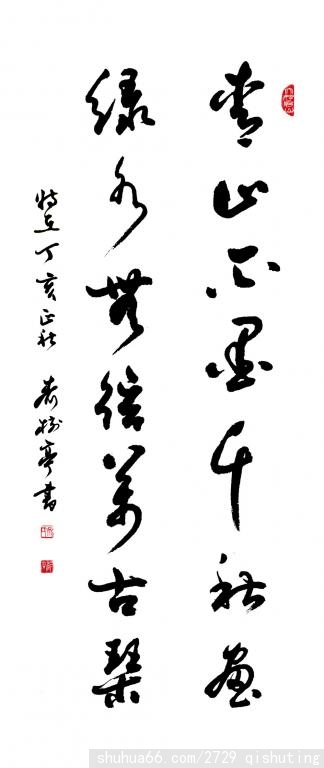 青山不墨千秋畫
綠水無弦萬古琴
時在丁亥正秋 樹亭書
shuhua66.com/2729 qishuting